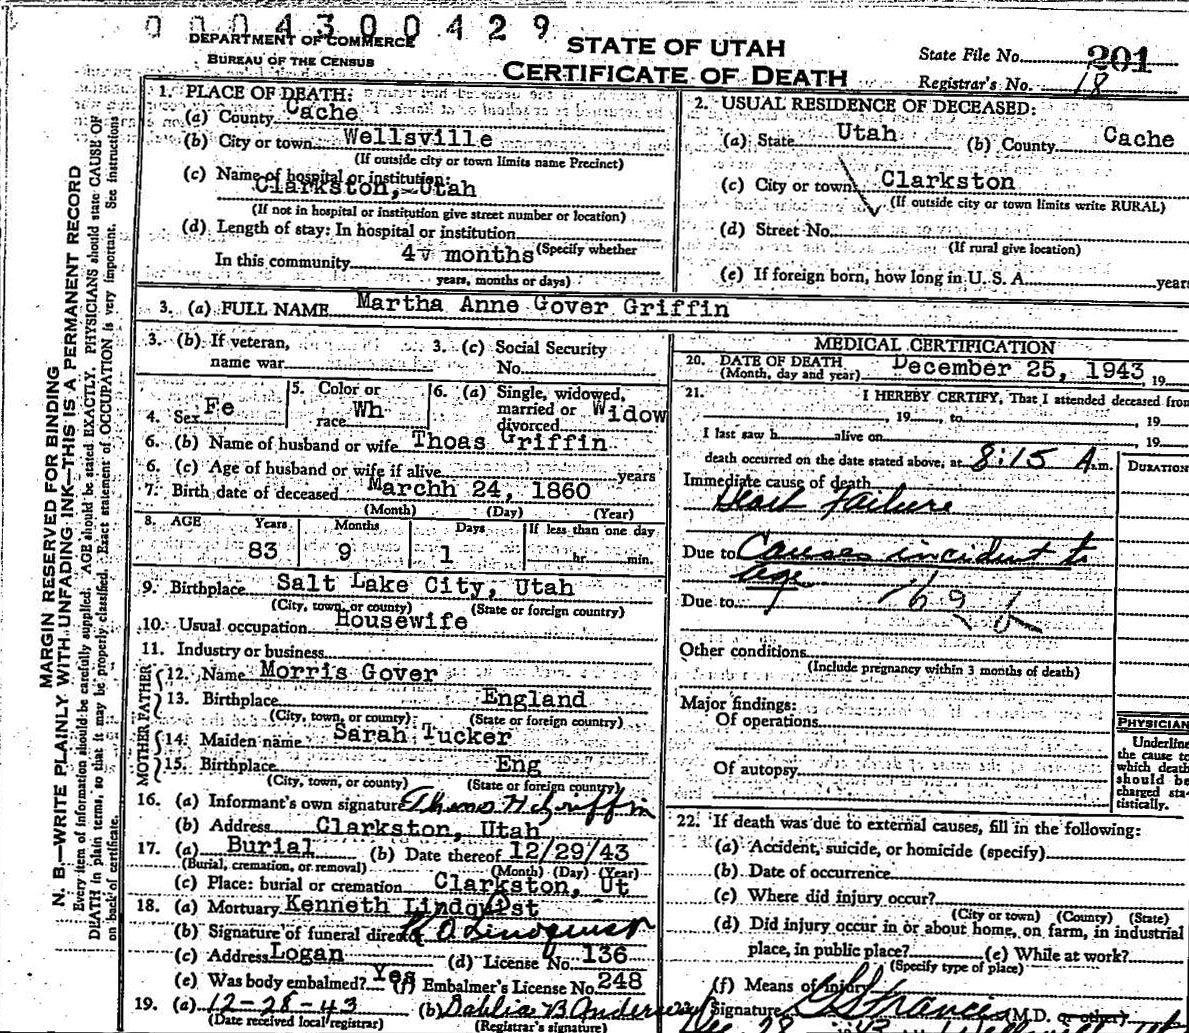 0004300429
DEPARTMENT OF COMMERCE
BUREAU OF THE CENSUS
STATE OF UTAH
CERTIFICATE OF DEATH
State File No. 201
Registrar's No. 18
MARGIN RESERVED FOR BINDING
N. B.—WRITE PLAINLY WITH UNFADING INK—THIS IS A PERMANENT RECORD
Every item of information should be carefully supplied. AGE should be stated EXACTLY. PHYSICIANS should state CAUSE OF
DEATH in plain terms, so that it may be properly classified. Exact statement of OCCUPATION is very important. See instructions
on back of certificate.
1. PLACE OF DEATH:
(a) County Cache
(b) City or town Wellsville
(If outside city or town limits name Precinct)
(c) Name of hospital or institution:
Clarkston, Utah
(If not in hospital or institution give street number or location)
(d) Length of stay: In hospital or institution
(Specify whether
In this community 4 months
years, months or days)
2. USUAL RESIDENCE OF DECEASED:
(a) State Utah (b) County Cache
(c) City or town Clarkston
(If outside city or town limits write RURAL)
(d) Street No.
(If rural give location)
(e) If foreign born, how long in U. S. A. years
3. (a) FULL NAME Martha Anne Gover Griffin
3. (b) If veteran, name war
3. (c) Social Security No.
4. Sex Fe
5. Color or race Wh
6. (a) Single, widowed, married or divorced Widow
6. (b) Name of husband or wife Thoas Griffin
6. (c) Age of husband or wife if alive years
7. Birth date of deceased Marchh 24, 1860
(Month) (Day) (Year)
8. AGE Years Months Days If less than one day
83 9 1 hr. min.
9. Birthplace Salt Lake City, Utah
(City, town, or county) (State or foreign country)
10. Usual occupation Housewife
11. Industry or business
FATHER
12. Name Morris Gover
13. Birthplace England
(City, town, or county) (State or foreign country)
MOTHER
14. Maiden name Sarah Tucker
15. Birthplace Eng
(City, town, or county) (State or foreign country)
16. (a) Informant's own signature Thomas H Griffin
(b) Address Clarkston, Utah
17. (a) Burial (b) Date thereof 12/29/43
(Burial, cremation, or removal) (Month) (Day) (Year)
(c) Place: burial or cremation Clarkston, Ut
18. (a) Mortuary Kenneth Lindquist
(b) Signature of funeral director K A Lindquist
(c) Address Logan (d) License No. 136
(e) Was body embalmed? Yes (f) Embalmer's License No. 248
19. (a) 12-28-43 (b) Dahlia B Anderson
(Date received local registrar) (Registrar's signature)
MEDICAL CERTIFICATION
20. DATE OF DEATH December 25, 1943, 19
(Month, day and year)
21. I HEREBY CERTIFY, That I attended deceased from
, 19 , to , 19
I last saw h alive on , 19
death occurred on the date stated above, at 8:15 A.m.
DURATION
Immediate cause of death
Heart Failure
Due to Causes incident to
age
Due to 162 b
Other conditions
(Include pregnancy within 3 months of death)
Major findings:
Of operations
Of autopsy
PHYSICIAN
Underline
the cause to
which death
should be
charged sta-
tistically.
22. If death was due to external causes, fill in the following:
(a) Accident, suicide, or homicide (specify)
(b) Date of occurrence
(c) Where did injury occur?
(City or town) (County) (State)
(d) Did injury occur in or about home, on farm, in industrial
place, in public place? (e) While at work?
(Specify type of place)
(f) Means of injury
Signature Francis (M.D. or other)
Dec 28